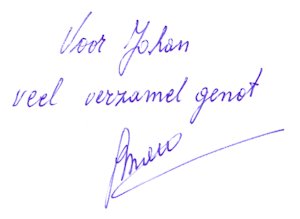 Voor Johan
veel verzamel genot